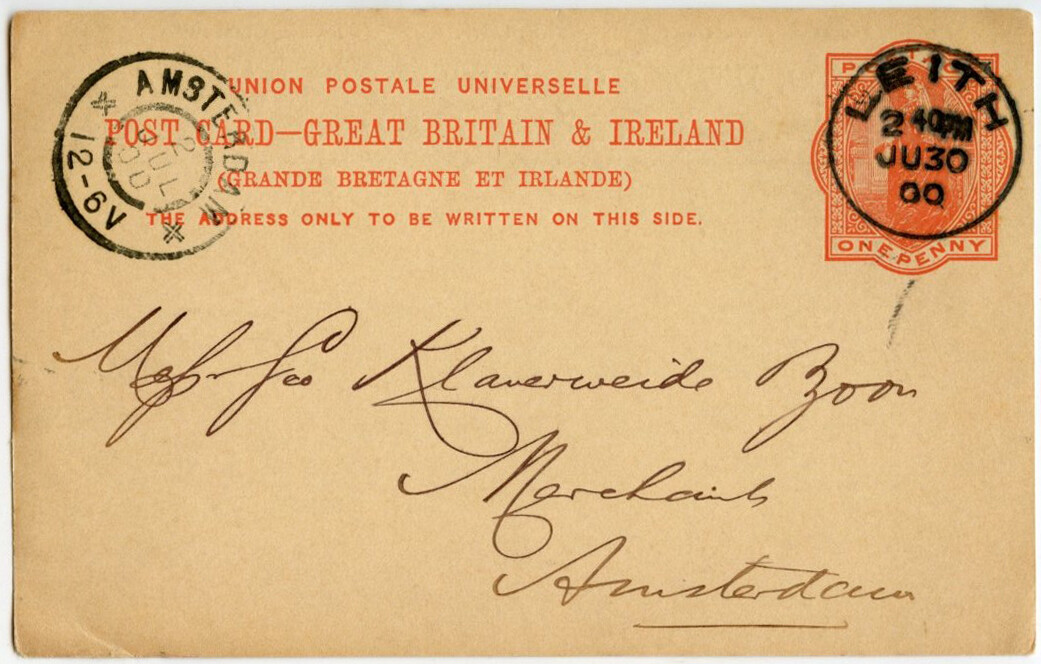 UNION POSTALE UNIVERSELLE
POST CARD—GREAT BRITAIN & IRELAND
(GRANDE BRETAGNE ET IRLANDE)
THE ADDRESS ONLY TO BE WRITTEN ON THIS SIDE.
AMSTERDAM
2 JUL 00
12-6V
LEITH
2 40PM
JU30
00
ONE PENNY
Messrs Geo Klaverweide Boon
Merchants
Amsterdam